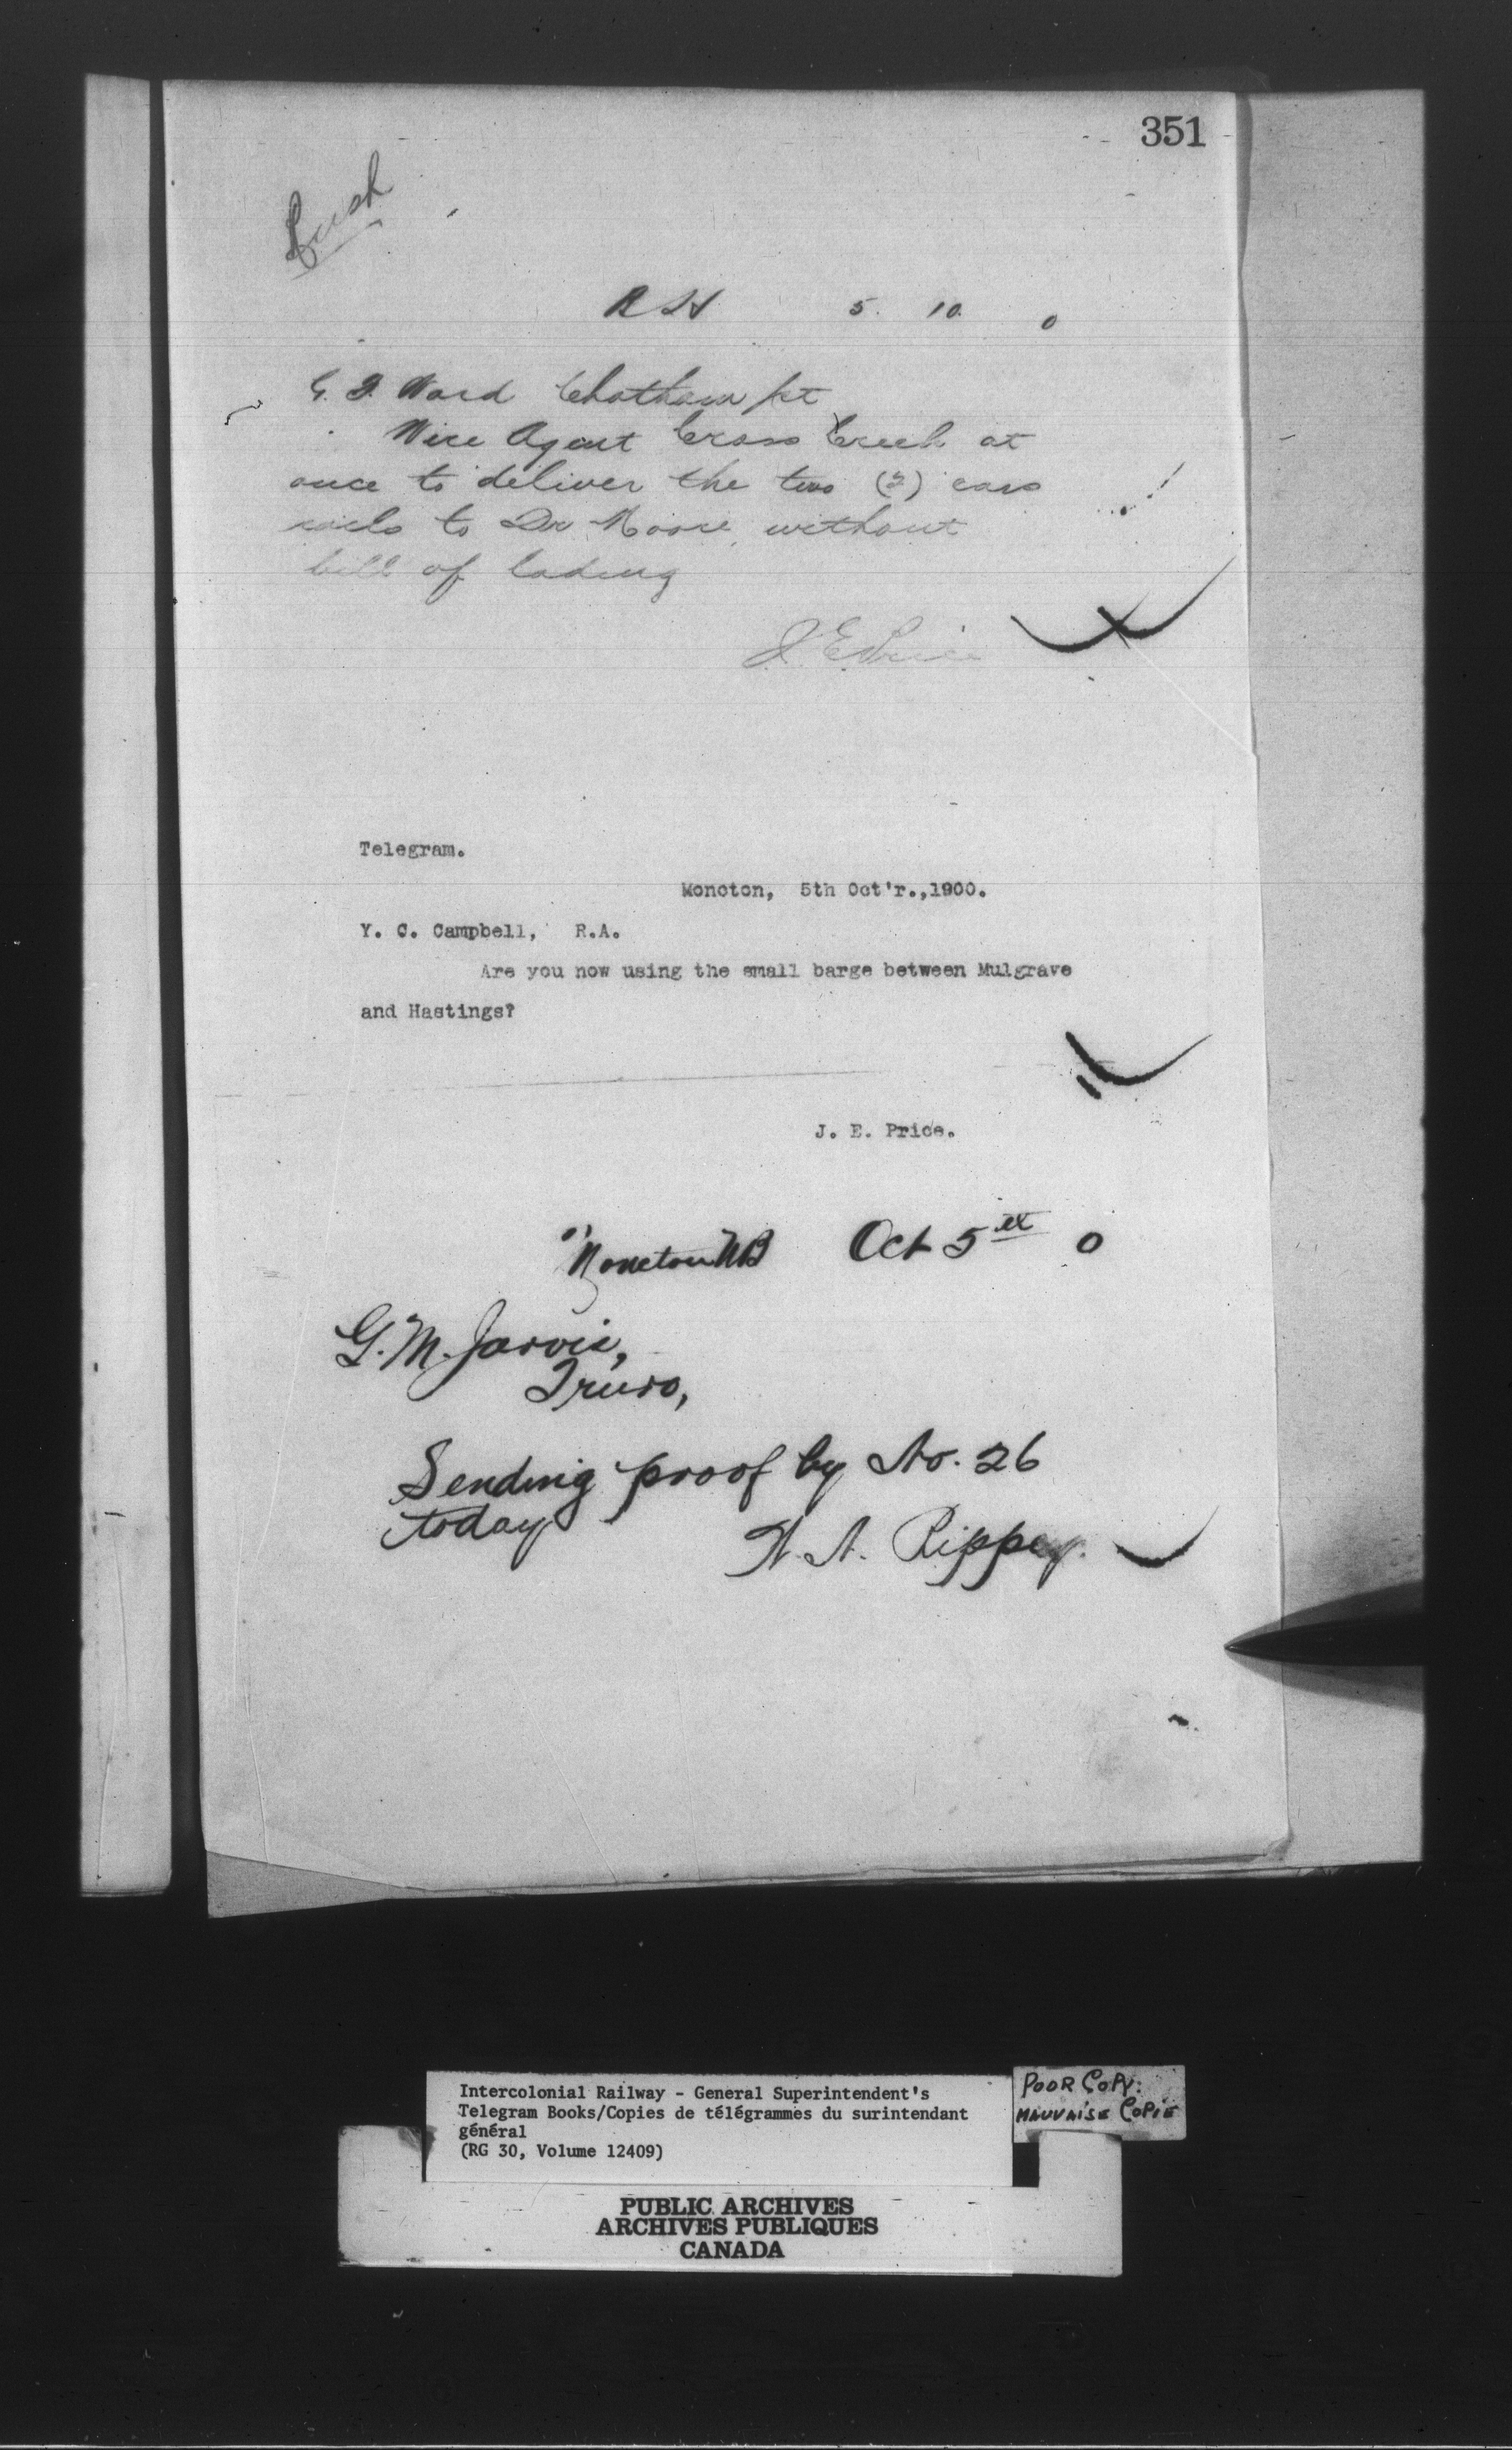 351
Rush
5. 10. 0
G. I. Ward Chatham Jct
Wire Agent Cross Creek at
once to deliver the two (2) cars
rails to Dr Moore, without
bill of lading
J. E. Price
Telegram.
Moncton, 5th Oct'r.,1900.
Y. C. Campbell, R.A.
Are you now using the small barge between Mulgrave
and Hastings?
J. E. Price.
Moncton NB Oct 5th 0
G. M. Jarvis,
Truro,
Sending proof by No. 26
today
Rippey.
Intercolonial Railway - General Superintendent's
Telegram Books/Copies de télégrammes du surintendant
général
(RG 30, Volume 12409)
POOR COPY:
MAUVAISE COPIE
PUBLIC ARCHIVES
ARCHIVES PUBLIQUES
CANADA